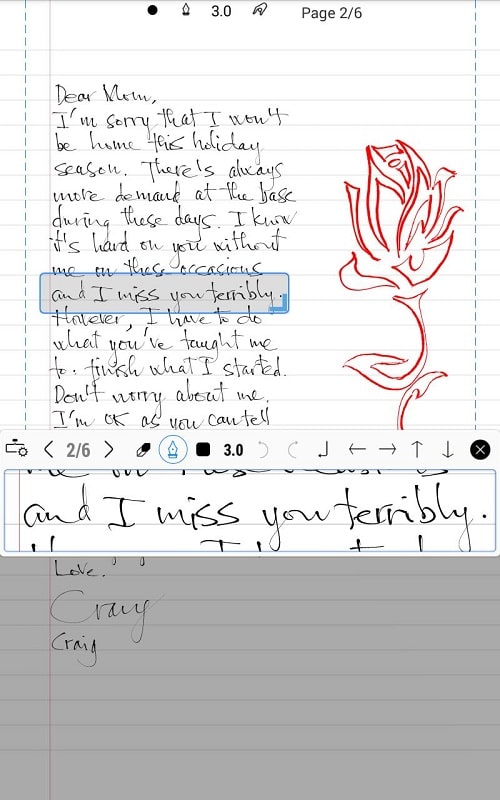 3.0 Page 2/6
Dear Mom,
I'm sorry that I won't
be home this holiday
season. There's always
more demand at the base
during these days. I know
it's hard on you without
me on these occasions
and I miss you terribly.
However, I have to do
what you've taught me
to. finish what I started.
Don't worry about me.
I'm OK as you can tell
2/6 3.0
and I miss you terribly.
Love.
Craig
Craig